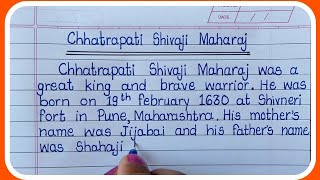 DATE
Chhatrapati Shivaji Maharaj
Chhatrapati Shivaji Maharaj was a
great king and brave warrior. He was
born on 19th february 1630 at Shivneri
fort in Pune, Maharashtra. His mother's
name was Jijabai and his father's name
was Shahaji